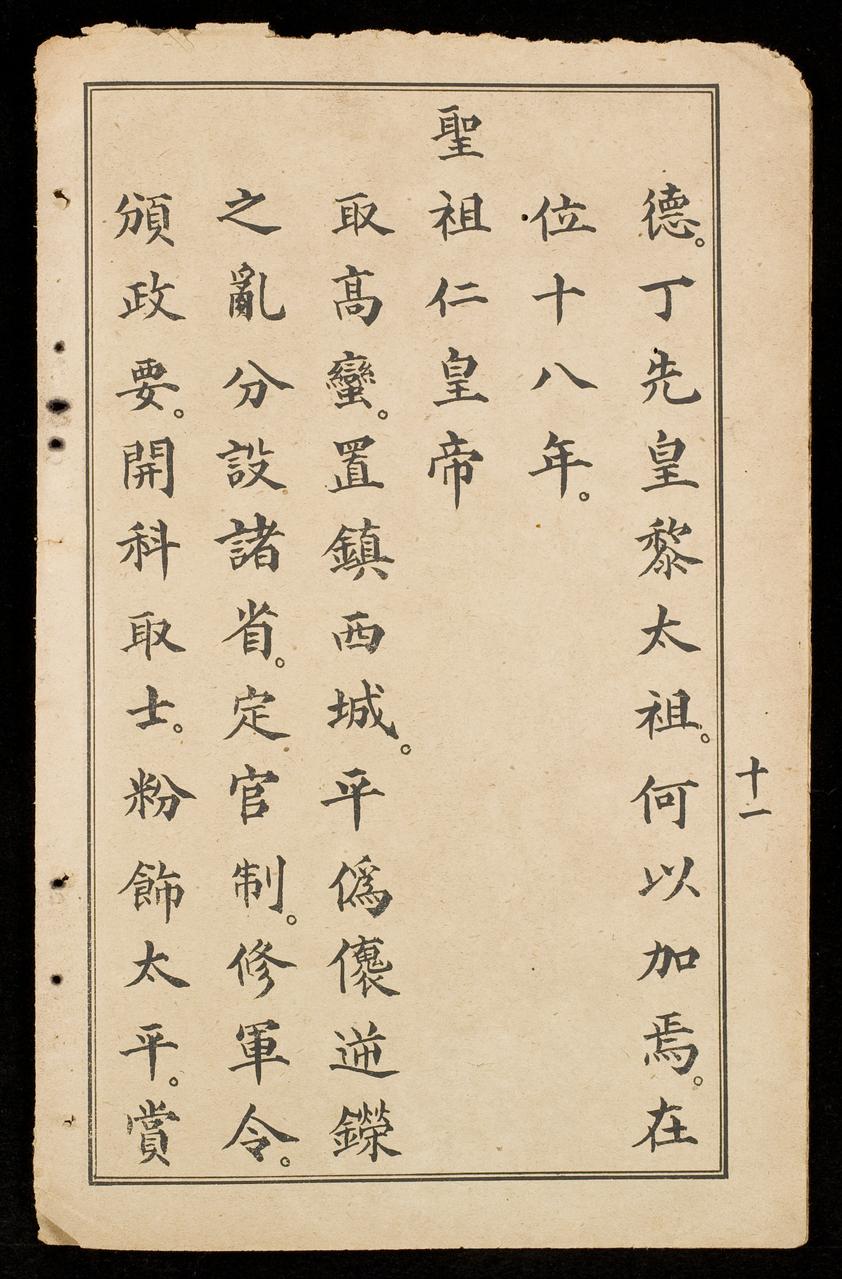 十一
德。丁先皇黎太祖。何以加焉。在
位十八年。
聖祖仁皇帝
取髙蠻。置鎮西城。平偽𠐤逆鑅
之亂分設諸省。定官制。修軍令。
頒政要。開科取士。粉飾太平。賞